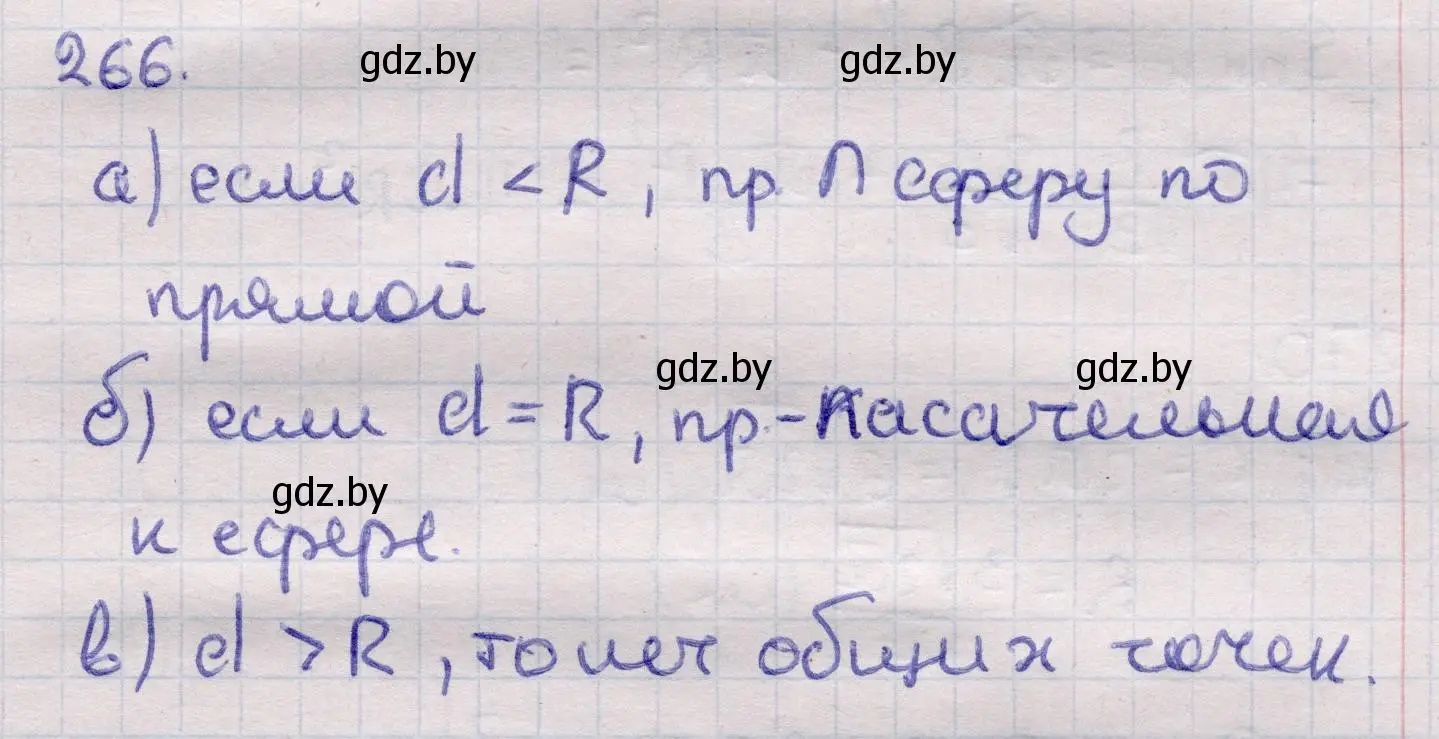 266. gdz.by gdz.by
а) если d < R, пр. ∩ сферу по
прямой
gdz.by gdz.by
б) если d = R, пр.-касательная
gdz.by
к сфере.
в) d > R, то нет общих точек.